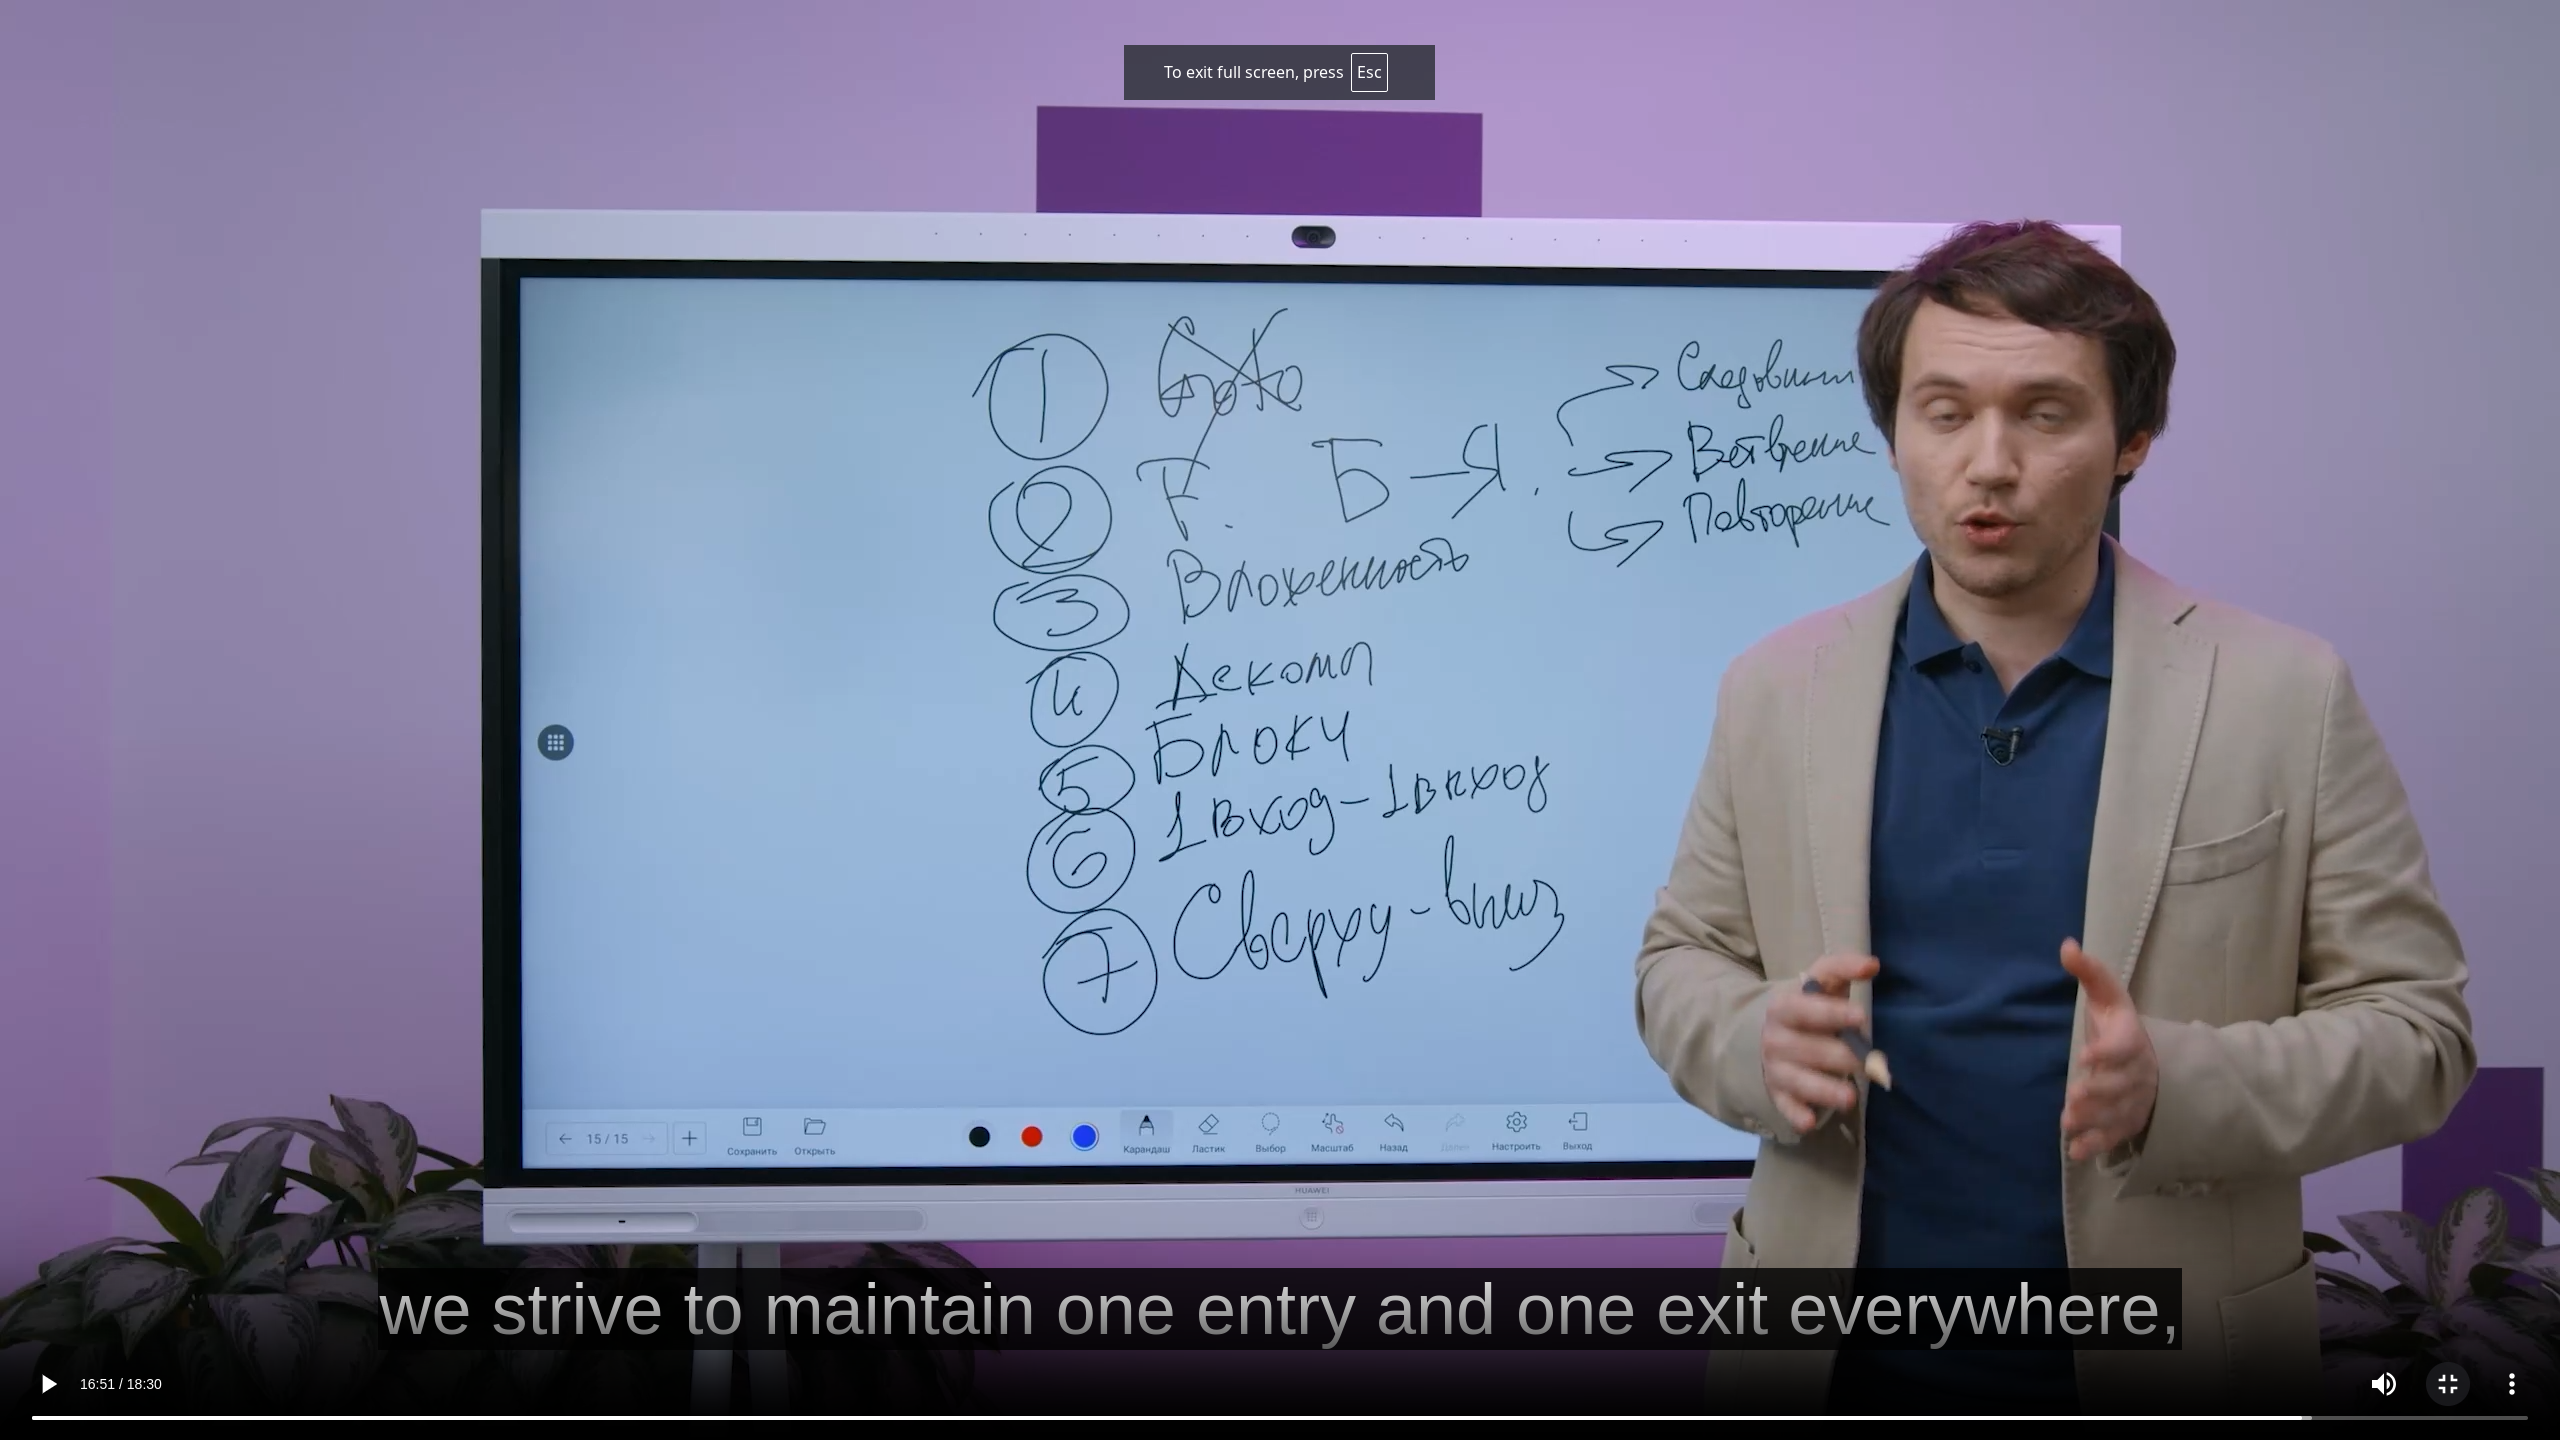 To exit full screen, press Esc
1 Goto
2 Т. Б-Я. Следование
Ветвление
Повторение
3 Вложенность
4 Декомп
5 Блоки
6 1 вход - 1 выход
7 Сверху-вниз
15 / 15
Сохранить Открыть Карандаш Ластик Выбор Масштаб Назад Далее Настроить Выход
HUAWEI
we strive to maintain one entry and one exit everywhere,
16:51 / 18:30